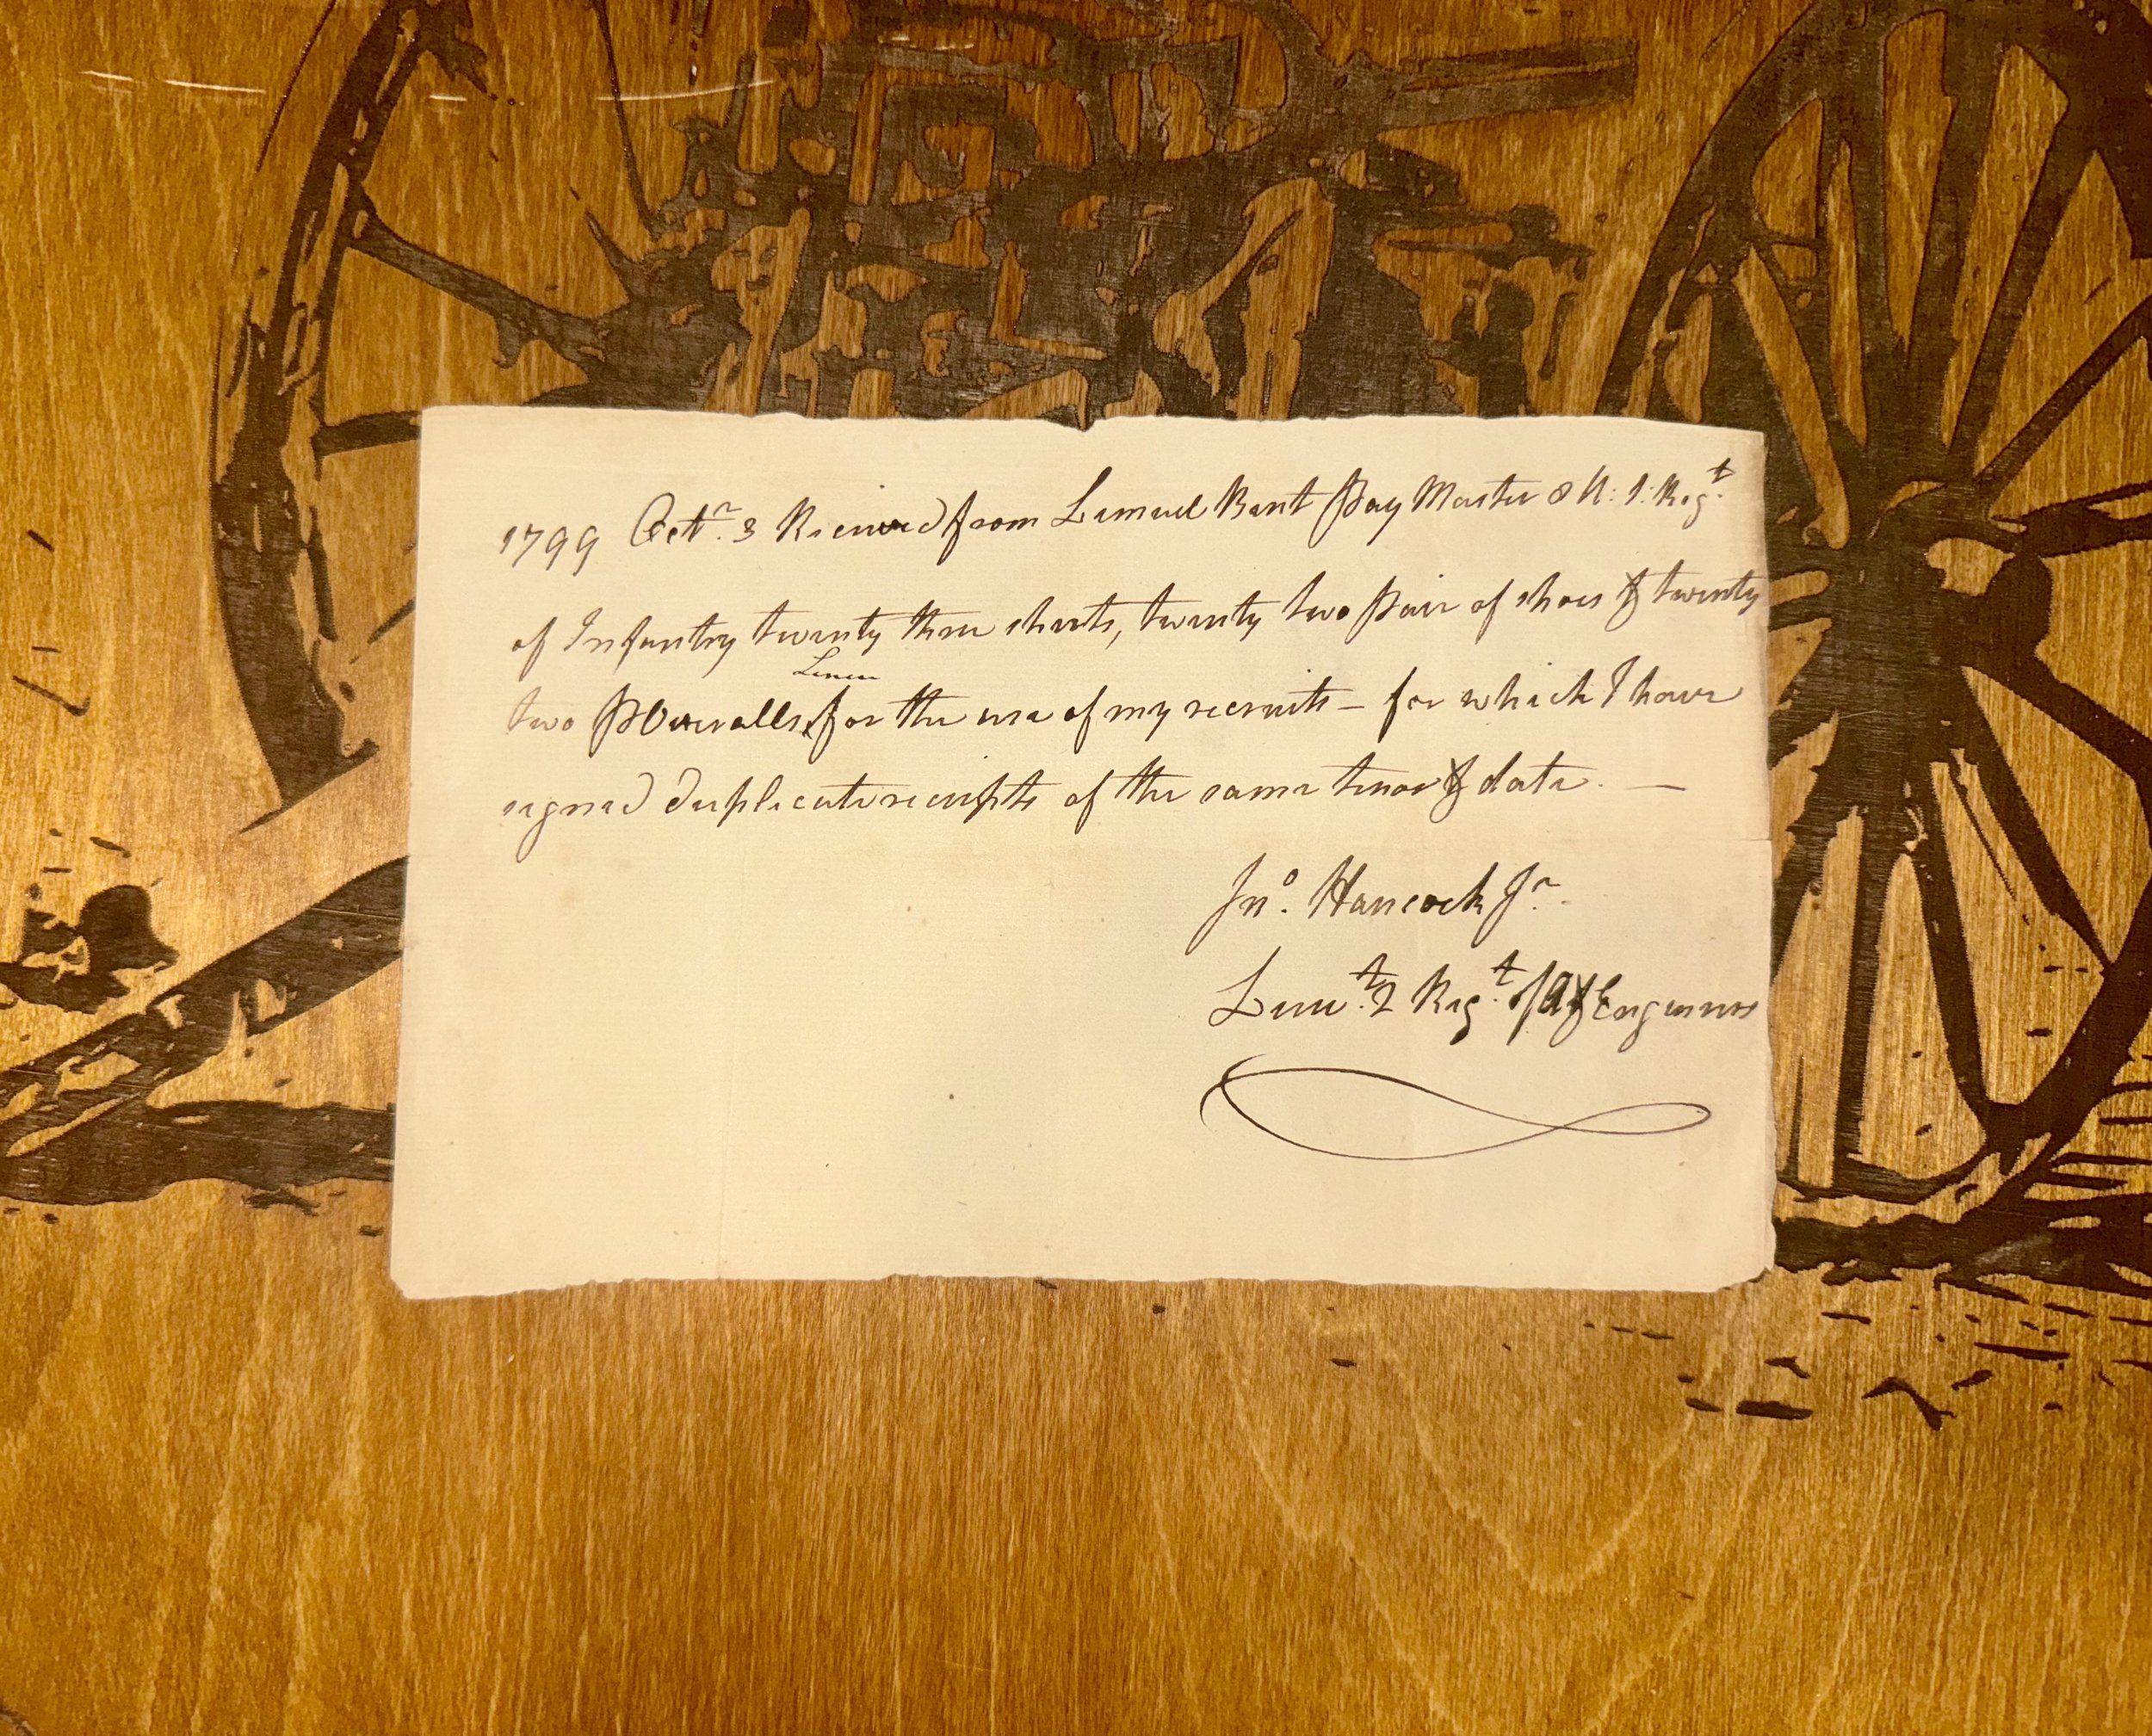 1799 Octr. 3 Received from Lemuel Bent Pay Master 8 U: S: Regt.
of Infantry twenty three shirts, twenty two pair of shoes & twenty
Linen
two p Overalls, for the use of my recruits — for which I have
signed duplicate receipts of the same tenor & date. —
Jno. Hancock Jr.
Lieut. 2 Regt. of A & Engineers